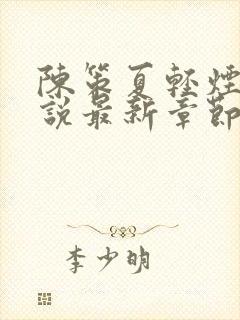 陳策夏輕煙
說最新章節
李少明